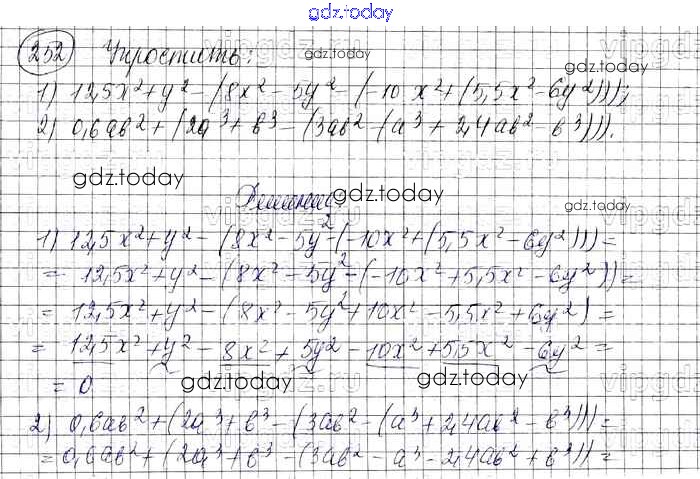 gdz.today
252 Упростить: gdz.today
gdz.today
1) 12,5x² + y² - (8x² - 5y² - (-10x² + (5,5x² - 6y²)));
2) 0,6ab² + (2a³ + b³ - (3ab² - (a³ + 2,4ab² - b³))).
gdz.today
Решение: gdz.today
gdz.today
1) 12,5x² + y² - (8x² - 5y² - (-10x² + (5,5x² - 6y²))) =
= 12,5x² + y² - (8x² - 5y² - (-10x² + 5,5x² - 6y²)) =
= 12,5x² + y² - (8x² - 5y² + 10x² - 5,5x² + 6y²) =
= 12,5x² + y² - 8x² + 5y² - 10x² + 5,5x² - 6y² =
= 0 gdz.today gdz.today
2) 0,6ab² + (2a³ + b³ - (3ab² - (a³ + 2,4ab² - b³))) =
= 0,6ab² + (2a³ + b³ - (3ab² - a³ - 2,4ab² + b³)) =